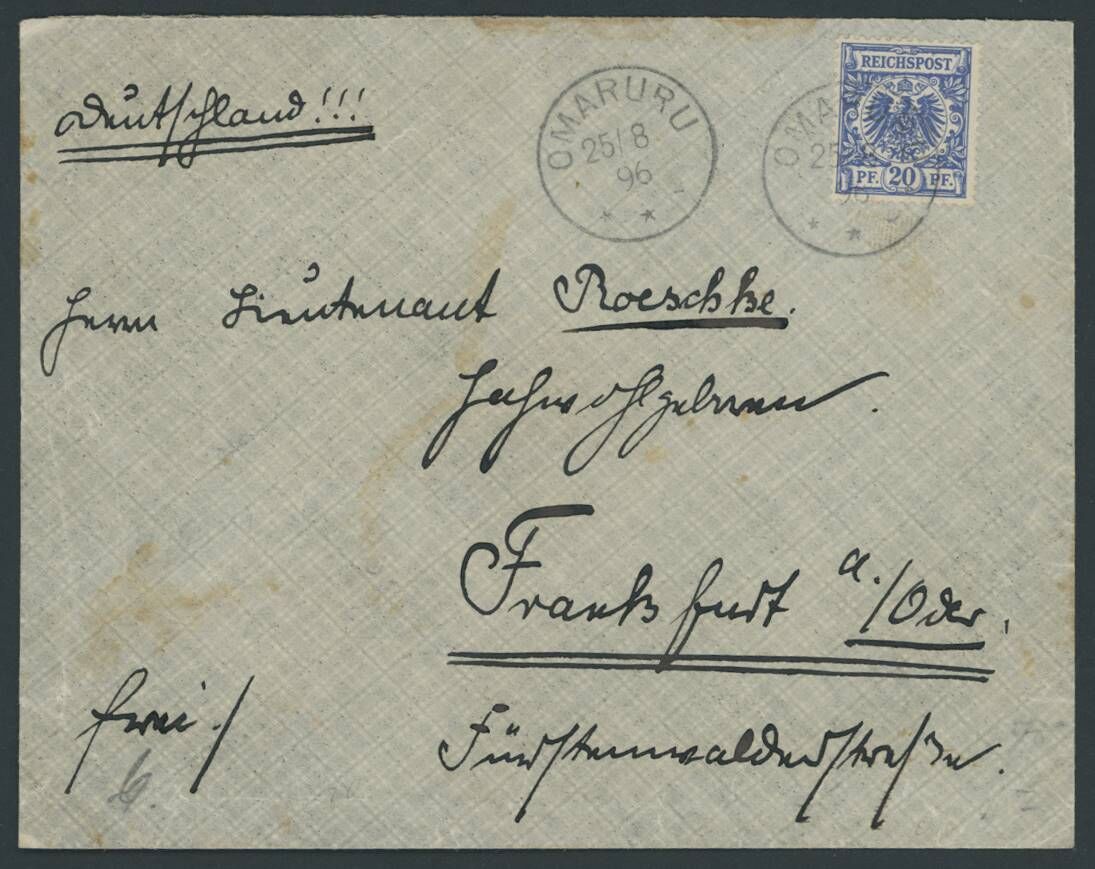 Deutschland!!!
OMARURU
25/8
96
REICHSPOST
PF. 20 PF.
OMA
25
96
Herrn Lieutenant Roeschke.
Hochwohlgeboren.
Frankfurt a./Oder.
frei./
Fürstenwalderstraße.
6.